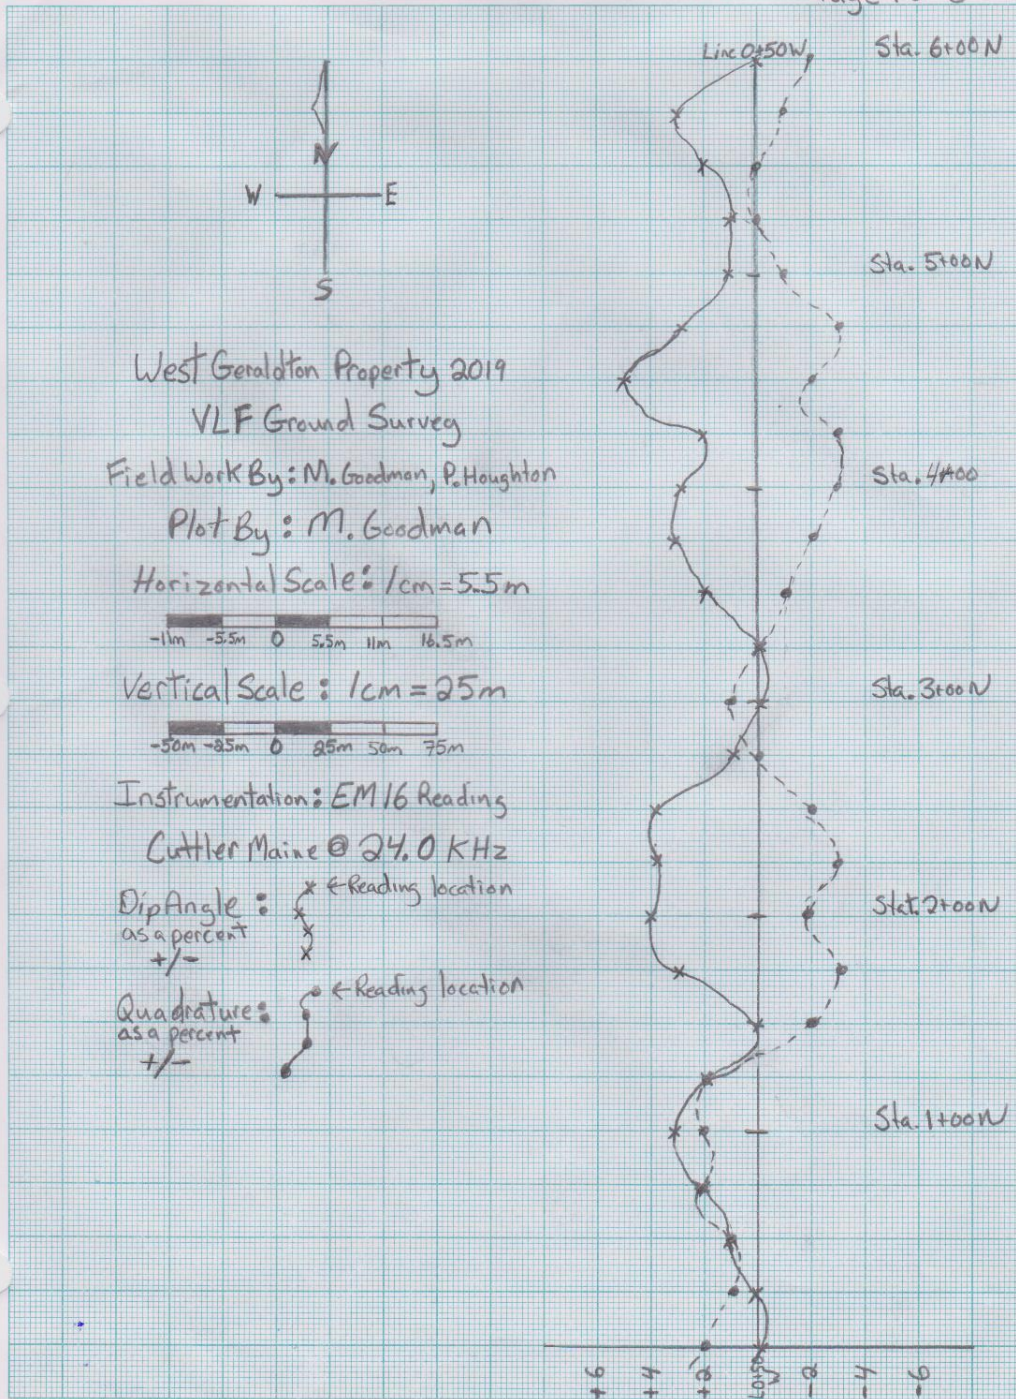 Line 0+50W
Sta. 6+00N
N
W
E
S
Sta. 5+00N
West Geraldton Property 2019
VLF Ground Survey
Field Work By: M. Goodman, P. Houghton
Plot By: M. Goodman
Sta. 4+00
Horizontal Scale: 1cm=5.5m
-11m -5.5m 0 5.5m 11m 16.5m
Vertical Scale: 1cm=25m
-50m -25m 0 25m 50m 75m
Sta. 3+00N
Instrumentation: EM16 Reading
Cuttler Maine @ 24.0 KHz
Dip Angle:
as a percent
+/-
←Reading location
Stat. 2+00N
Quadrature:
as a percent
+/-
←Reading location
Sta. 1+00N
+6 +4 +2 L0+50W -2 -4 -6